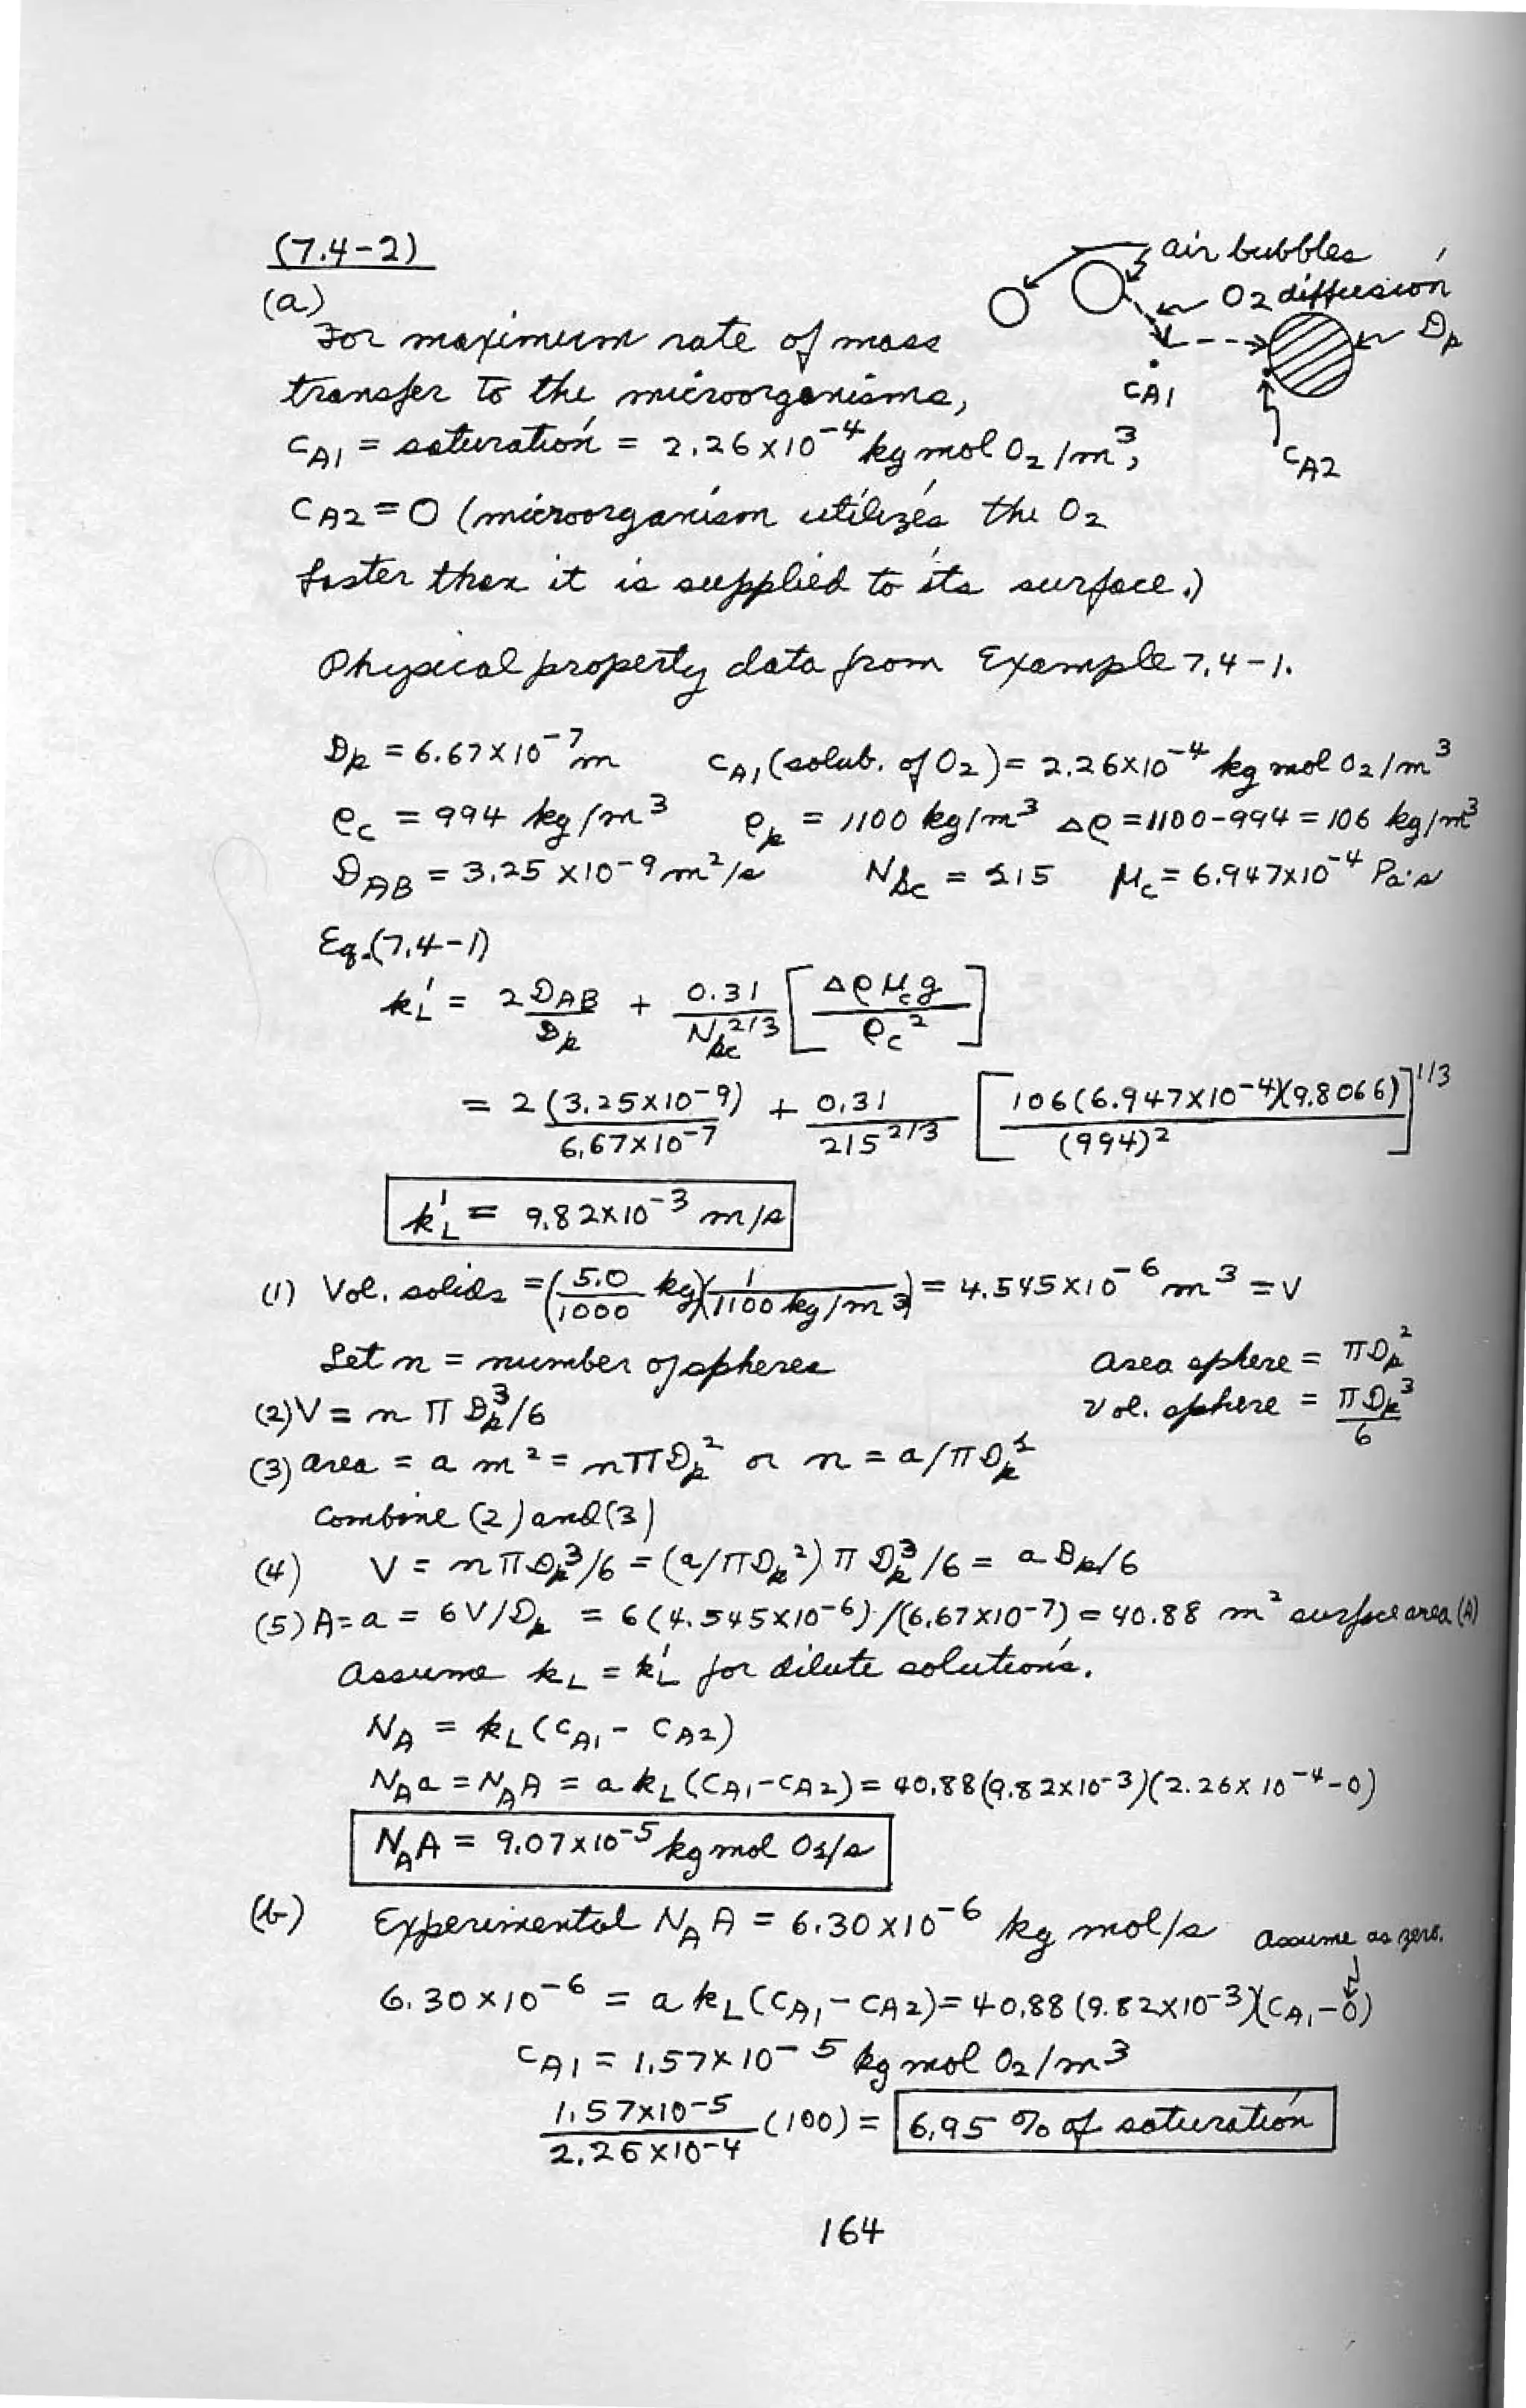 (7.4-2)
air bubbles
O2 diffusion
Dp
cA1
cA2
(a)
For maximum rate of mass
transfer to the microorganisms,
cA1 = saturation = 2.26 x 10^-4 kg mol O2/m^3,
cA2 = 0 (microorganism utilizes the O2
faster than it is supplied to its surface.)
Physical property data from Example 7.4-1.
Dp = 6.67 x 10^-7 m   cA1 (solub. of O2) = 2.26 x 10^-4 kg mol O2/m^3
ρc = 994 kg/m^3   ρp = 1100 kg/m^3   Δρ = 1100-994 = 106 kg/m^3
DAB = 3.25 x 10^-9 m^2/s   NSc = 215   μc = 6.947x10^-4 Pa·s
Eq. (7.4-1)
k'L = 2DAB/Dp + 0.31/NSc^2/3 [Δρ μc g/ρc^2]
= 2(3.25x10^-9)/6.67x10^-7 + 0.31/215^2/3 [106(6.947x10^-4)(9.8066)/(994)^2]^1/3
k'L = 9.82x10^-3 m/s
(1) Vol. solids = (5.0/1000 kg)(1/1100 kg/m^3) = 4.545x10^-6 m^3 = V
Let n = number of spheres   area sphere = πDp^2
(2) V = n π Dp^3/6   vol. sphere = πDp^3/6
(3) area = a m^2 = nπDp^2 or n = a/πDp^2
Combine (2) and (3)
(4) V = nπDp^3/6 = (a/πDp^2) π Dp^3/6 = a Dp/6
(5) A = a = 6V/Dp = 6(4.545x10^-6)/(6.67x10^-7) = 40.88 m^2 surface area (A)
Assume kL = k'L for dilute solutions.
NA = kL(cA1 - cA2)
NA a = NA A = a kL(cA1-cA2) = 40.88(9.82x10^-3)(2.26x10^-4-0)
NA A = 9.07x10^-5 kg mol O2/s
(b) Experimental NA A = 6.30x10^-6 kg mol/s   assume as zero.
6.30x10^-6 = a kL(cA1-cA2) = 40.88(9.82x10^-3)(cA1-0)
cA1 = 1.57x10^-5 kg mol O2/m^3
1.57x10^-5/2.26x10^-4 (100) = 6.95 % of saturation
164